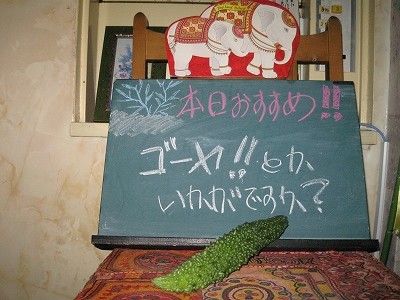 本日おすすめ!!
ゴーヤ!!とか、
いかがですか?